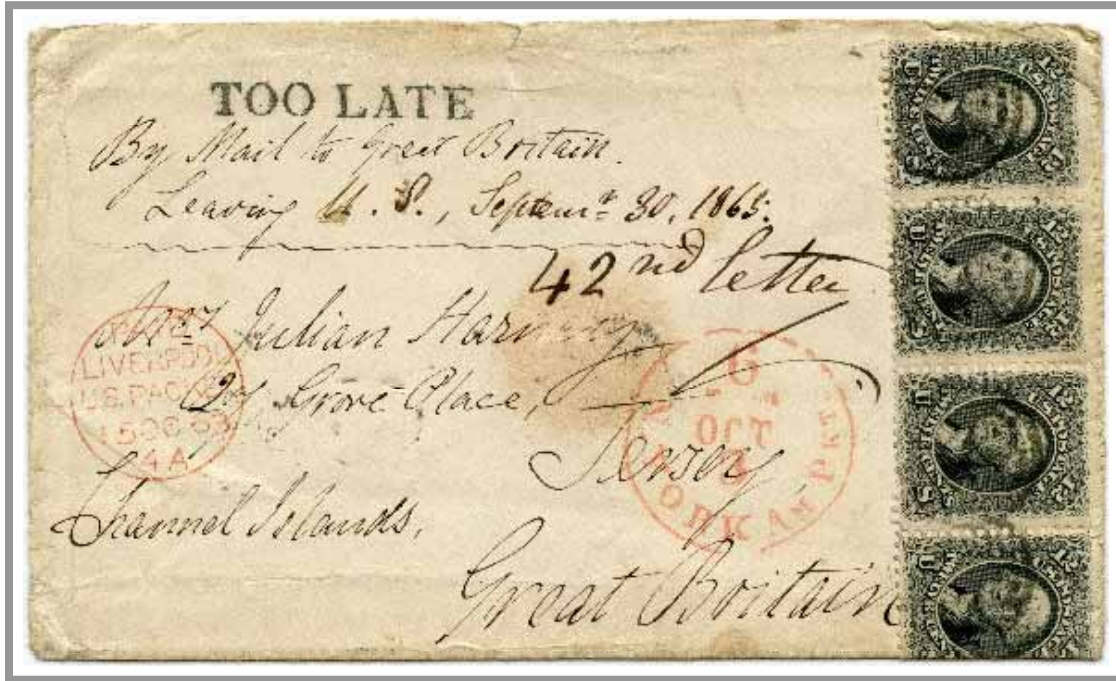 TOO LATE
By Mail to Great Britain.
Leaving U. S., Septem.r 30, 1865.
42nd letter
Mrs Julian Harney
2 Grove Place,
Jersey,
Channel Islands.
Great Britain
LIVERPOOL
U.S. PACKET
15 OC 63
4 A
6
OCT
YORK AM PKT
12
12
12
12